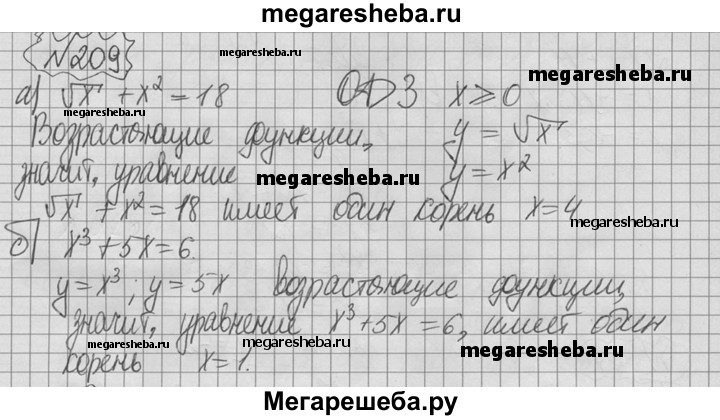 megaresheba.ru
№209 megaresheba.ru
а) √x + x² = 18 ОДЗ x ≥ 0 megaresheba.ru
megaresheba.ru
Возрастающие функции, y = √x
значит, уравнение megaresheba.ru y = x²
√x + x² = 18 имеет один корень x = 4
megaresheba.ru
б) x³ + 5x = 6.
y = x³; y = 5x возрастающие функции,
значит, уравнение x³ + 5x = 6, имеет один
megaresheba.ru megaresheba.ru
корень x = 1.
Мегарешеба.ру